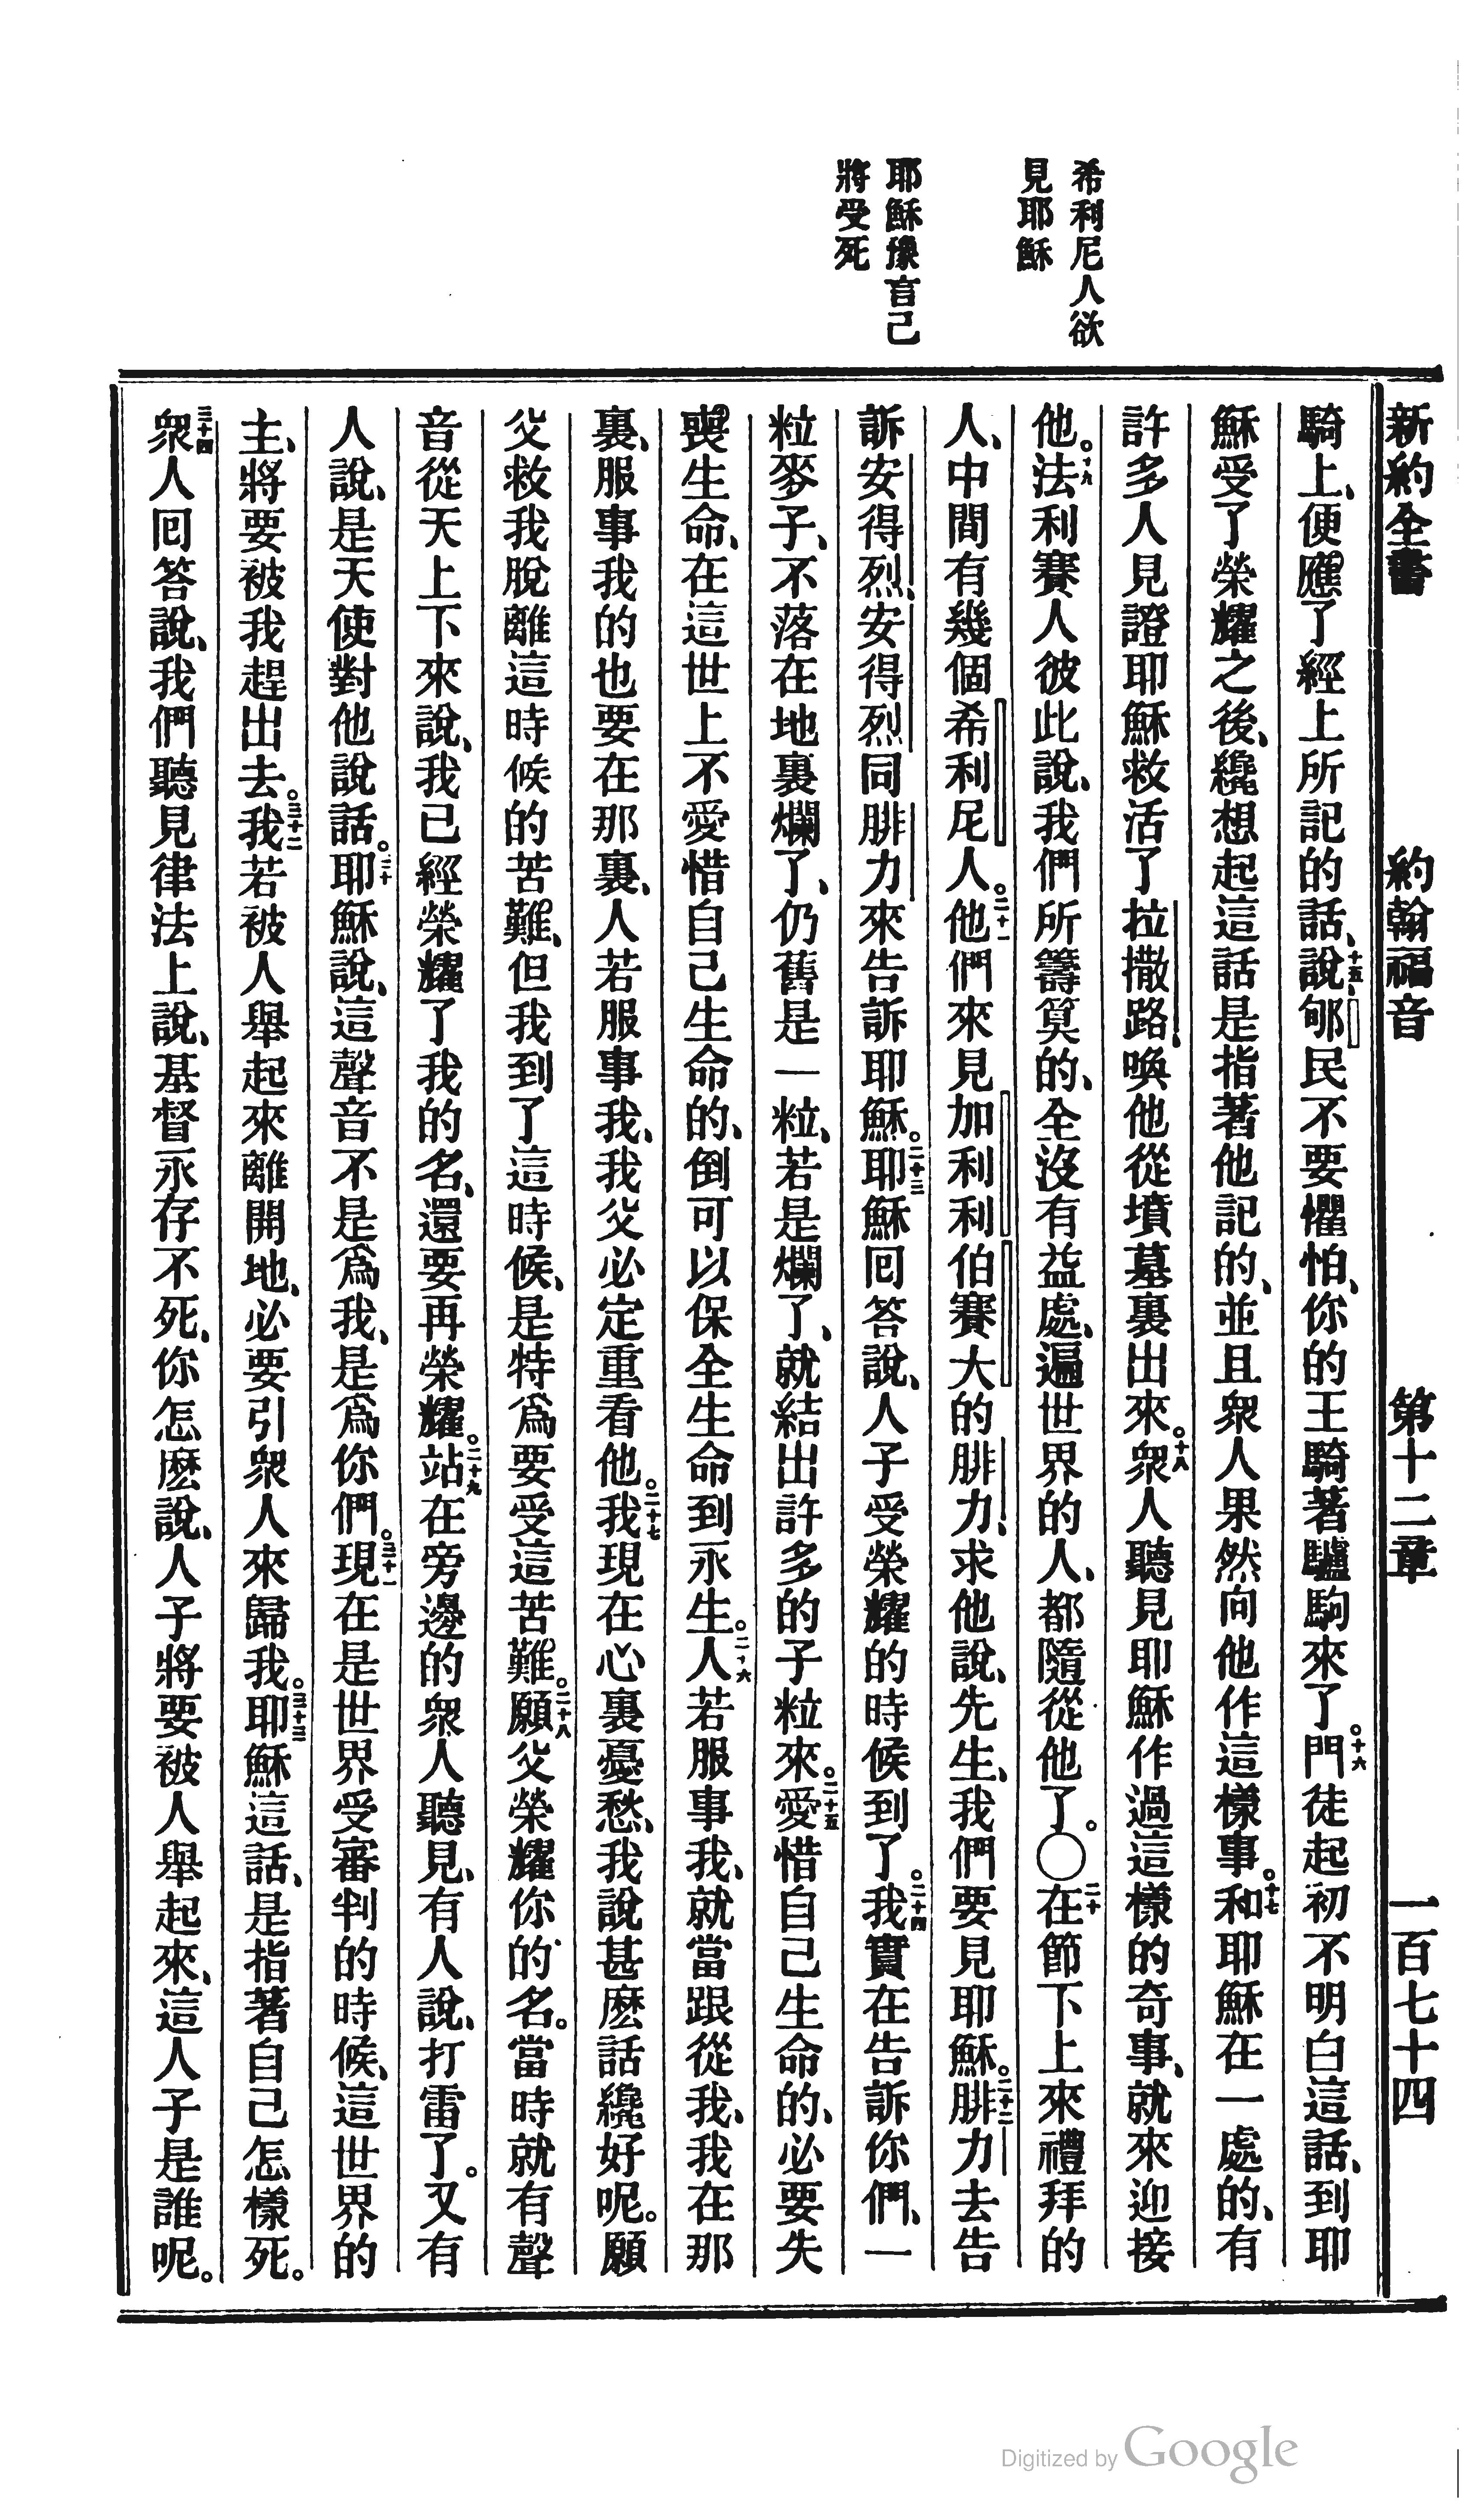 希利尼人欲
見耶穌
耶穌豫言己
將受死
新約全書 約翰福音 第十二章 一百七十四
騎上、便應了經上所記的話、十五說、郇民不要懼怕、你的王騎著驢駒來了。十六門徒起初不明白這話、到耶
穌受了榮耀之後、纔想起這話是指著他記的、並且衆人果然向他作這樣事。十七和耶穌在一處的、有
許多人見證耶穌救活了拉撒路、喚他從墳墓裏出來。十八衆人聽見耶穌作過這樣的奇事、就來迎接
他。十九法利賽人彼此說、我們所籌算的、全沒有益處、遍世界的人、都隨從他了。○二十在節下上來禮拜的
人、中間有幾個希利尼人。二十一他們來見加利利伯賽大的腓力、求他說、先生、我們要見耶穌。二十二腓力去告
訴安得烈、安得烈同腓力來告訴耶穌。二十三耶穌回答說、人子受榮耀的時候到了。二十四我實在告訴你們、一
粒麥子、不落在地裏爛了、仍舊是一粒、若是爛了、就結出許多的子粒來。二十五愛惜自己生命的、必要失
喪生命、在這世上不愛惜自己生命的、倒可以保全生命到永生。二十六人若服事我、就當跟從我、我在那
裏、服事我的也要在那裏、人若服事我、我父必定重看他。二十七我現在心裏憂愁、我說甚麽話纔好呢。願
父救我脫離這時候的苦難、但我到了這時候、是特爲要受這苦難。二十八願父榮耀你的名。當時就有聲
音從天上下來說、我已經榮耀了我的名、還要再榮耀。二十九站在旁邊的衆人聽見、有人說、打雷了。又有
人說、是天使對他說話。三十耶穌說、這聲音不是爲我、是爲你們。三十一現在是世界受審判的時候、這世界的
主、將要被我趕出去。三十二我若被人舉起來離開地、必要引衆人來歸我。三十三耶穌這話、是指著自己怎樣死。
三十四衆人回答說、我們聽見律法上說、基督永存不死、你怎麽說、人子將要被人舉起來、這人子是誰呢。
Digitized by Google